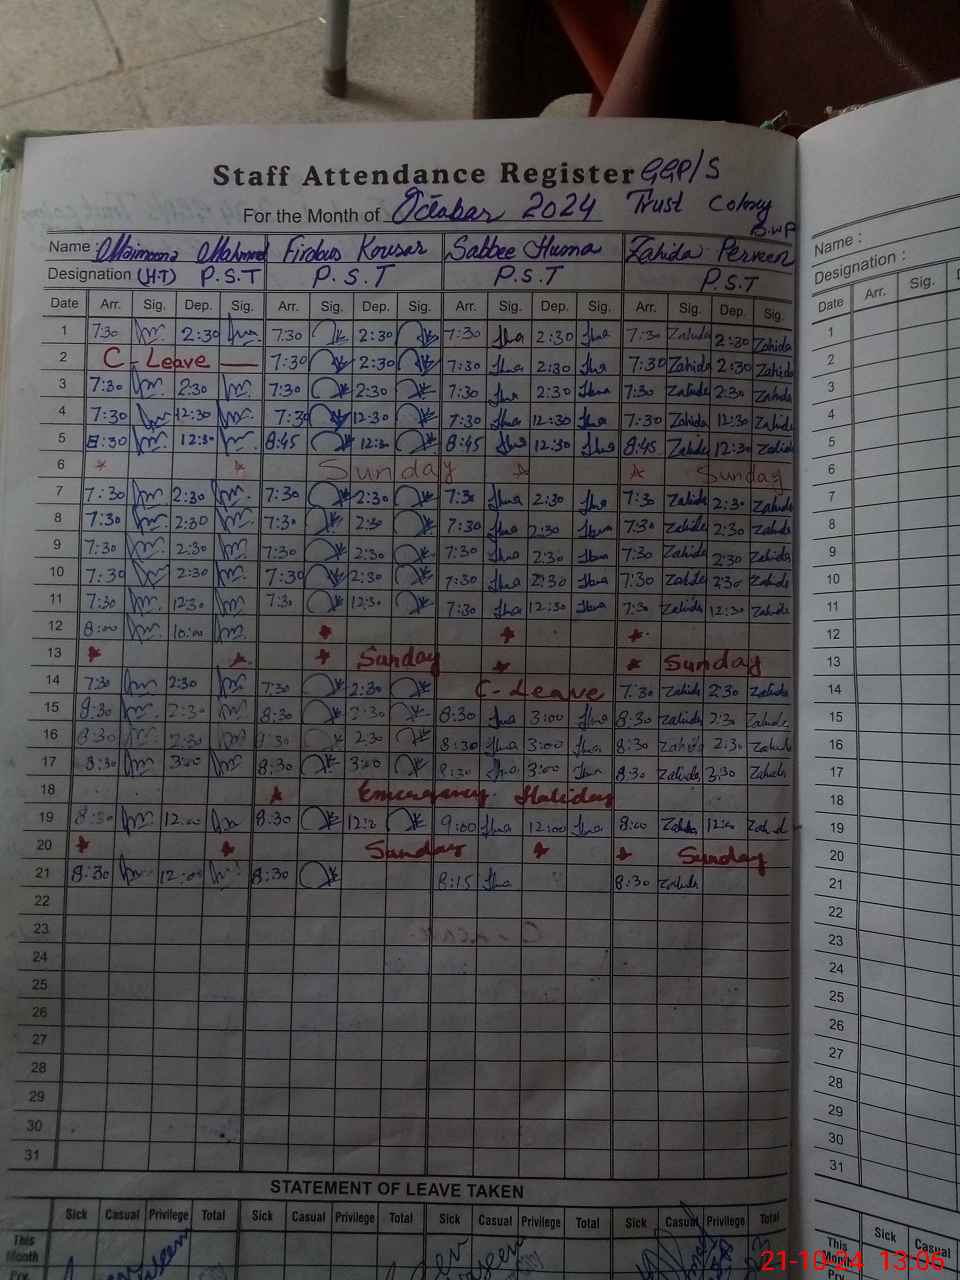 Staff Attendance Register GGP/S
For the Month of October 2024 Trust Colony B.W.P
Name : Maimoona Mahmood Firdous Kousar Sabbee Huma Zahida Perveen
Designation (H.T) P.S.T P.S.T P.S.T P.S.T
Date Arr. Sig. Dep. Sig. Arr. Sig. Dep. Sig. Arr. Sig. Dep. Sig. Arr. Sig. Dep. Sig.
1 7:30 2:30 7:30 2:30 7:30 Huma 2:30 Huma 7:30 Zahida 2:30 Zahida
2 C-Leave 7:30 2:30 7:30 Huma 2:30 Huma 7:30 Zahida 2:30 Zahida
3 7:30 2:30 7:30 2:30 7:30 Huma 2:30 Huma 7:30 Zahida 2:30 Zahida
4 7:30 12:30 7:30 12:30 7:30 Huma 12:30 Huma 7:30 Zahida 12:30 Zahida
5 8:30 12:30 8:45 12:30 8:45 Huma 12:30 Huma 8:45 Zahida 12:30 Zahida
6 Sunday Sunday
7 7:30 2:30 7:30 2:30 7:30 Huma 2:30 Huma 7:30 Zahida 2:30 Zahida
8 7:30 2:30 7:30 2:30 7:30 Huma 2:30 Huma 7:30 Zahida 2:30 Zahida
9 7:30 2:30 7:30 2:30 7:30 Huma 2:30 Huma 7:30 Zahida 2:30 Zahida
10 7:30 2:30 7:30 2:30 7:30 Huma 2:30 Huma 7:30 Zahida 2:30 Zahida
11 7:30 12:30 7:30 12:30 7:30 Huma 12:30 Huma 7:30 Zahida 12:30 Zahida
12 8:00 10:00
13 Sunday Sunday
14 7:30 2:30 7:30 2:30 C-Leave 7:30 Zahida 2:30 Zahida
15 8:30 2:30 8:30 2:30 8:30 Huma 3:00 Huma 8:30 Zahida 2:30 Zahida
16 8:30 2:30 8:30 2:30 8:30 Huma 3:00 Huma 8:30 Zahida 2:30 Zahida
17 8:30 3:00 8:30 3:00 8:30 Huma 3:00 Huma 8:30 Zahida 3:30 Zahida
18 Emergency Holiday
19 8:30 12:00 8:30 12:0 9:00 Huma 12:00 Huma 8:00 Zahida 12:00 Zahida
20 Sunday Sunday
21 8:30 12:00 8:30 8:15 Huma 8:30 Zahida
22
23
24
25
26
27
28
29
30
31
STATEMENT OF LEAVE TAKEN
Sick Casual Privilege Total Sick Casual Privilege Total Sick Casual Privilege Total Sick Casual Privilege Total
This Month
Name :
Designation :
Date Arr. Sig.
1
2
3
4
5
6
7
8
9
10
11
12
13
14
15
16
17
18
19
20
21
22
23
24
25
26
27
28
29
30
31
Sick Casual
This Month
21-10-24 13:06